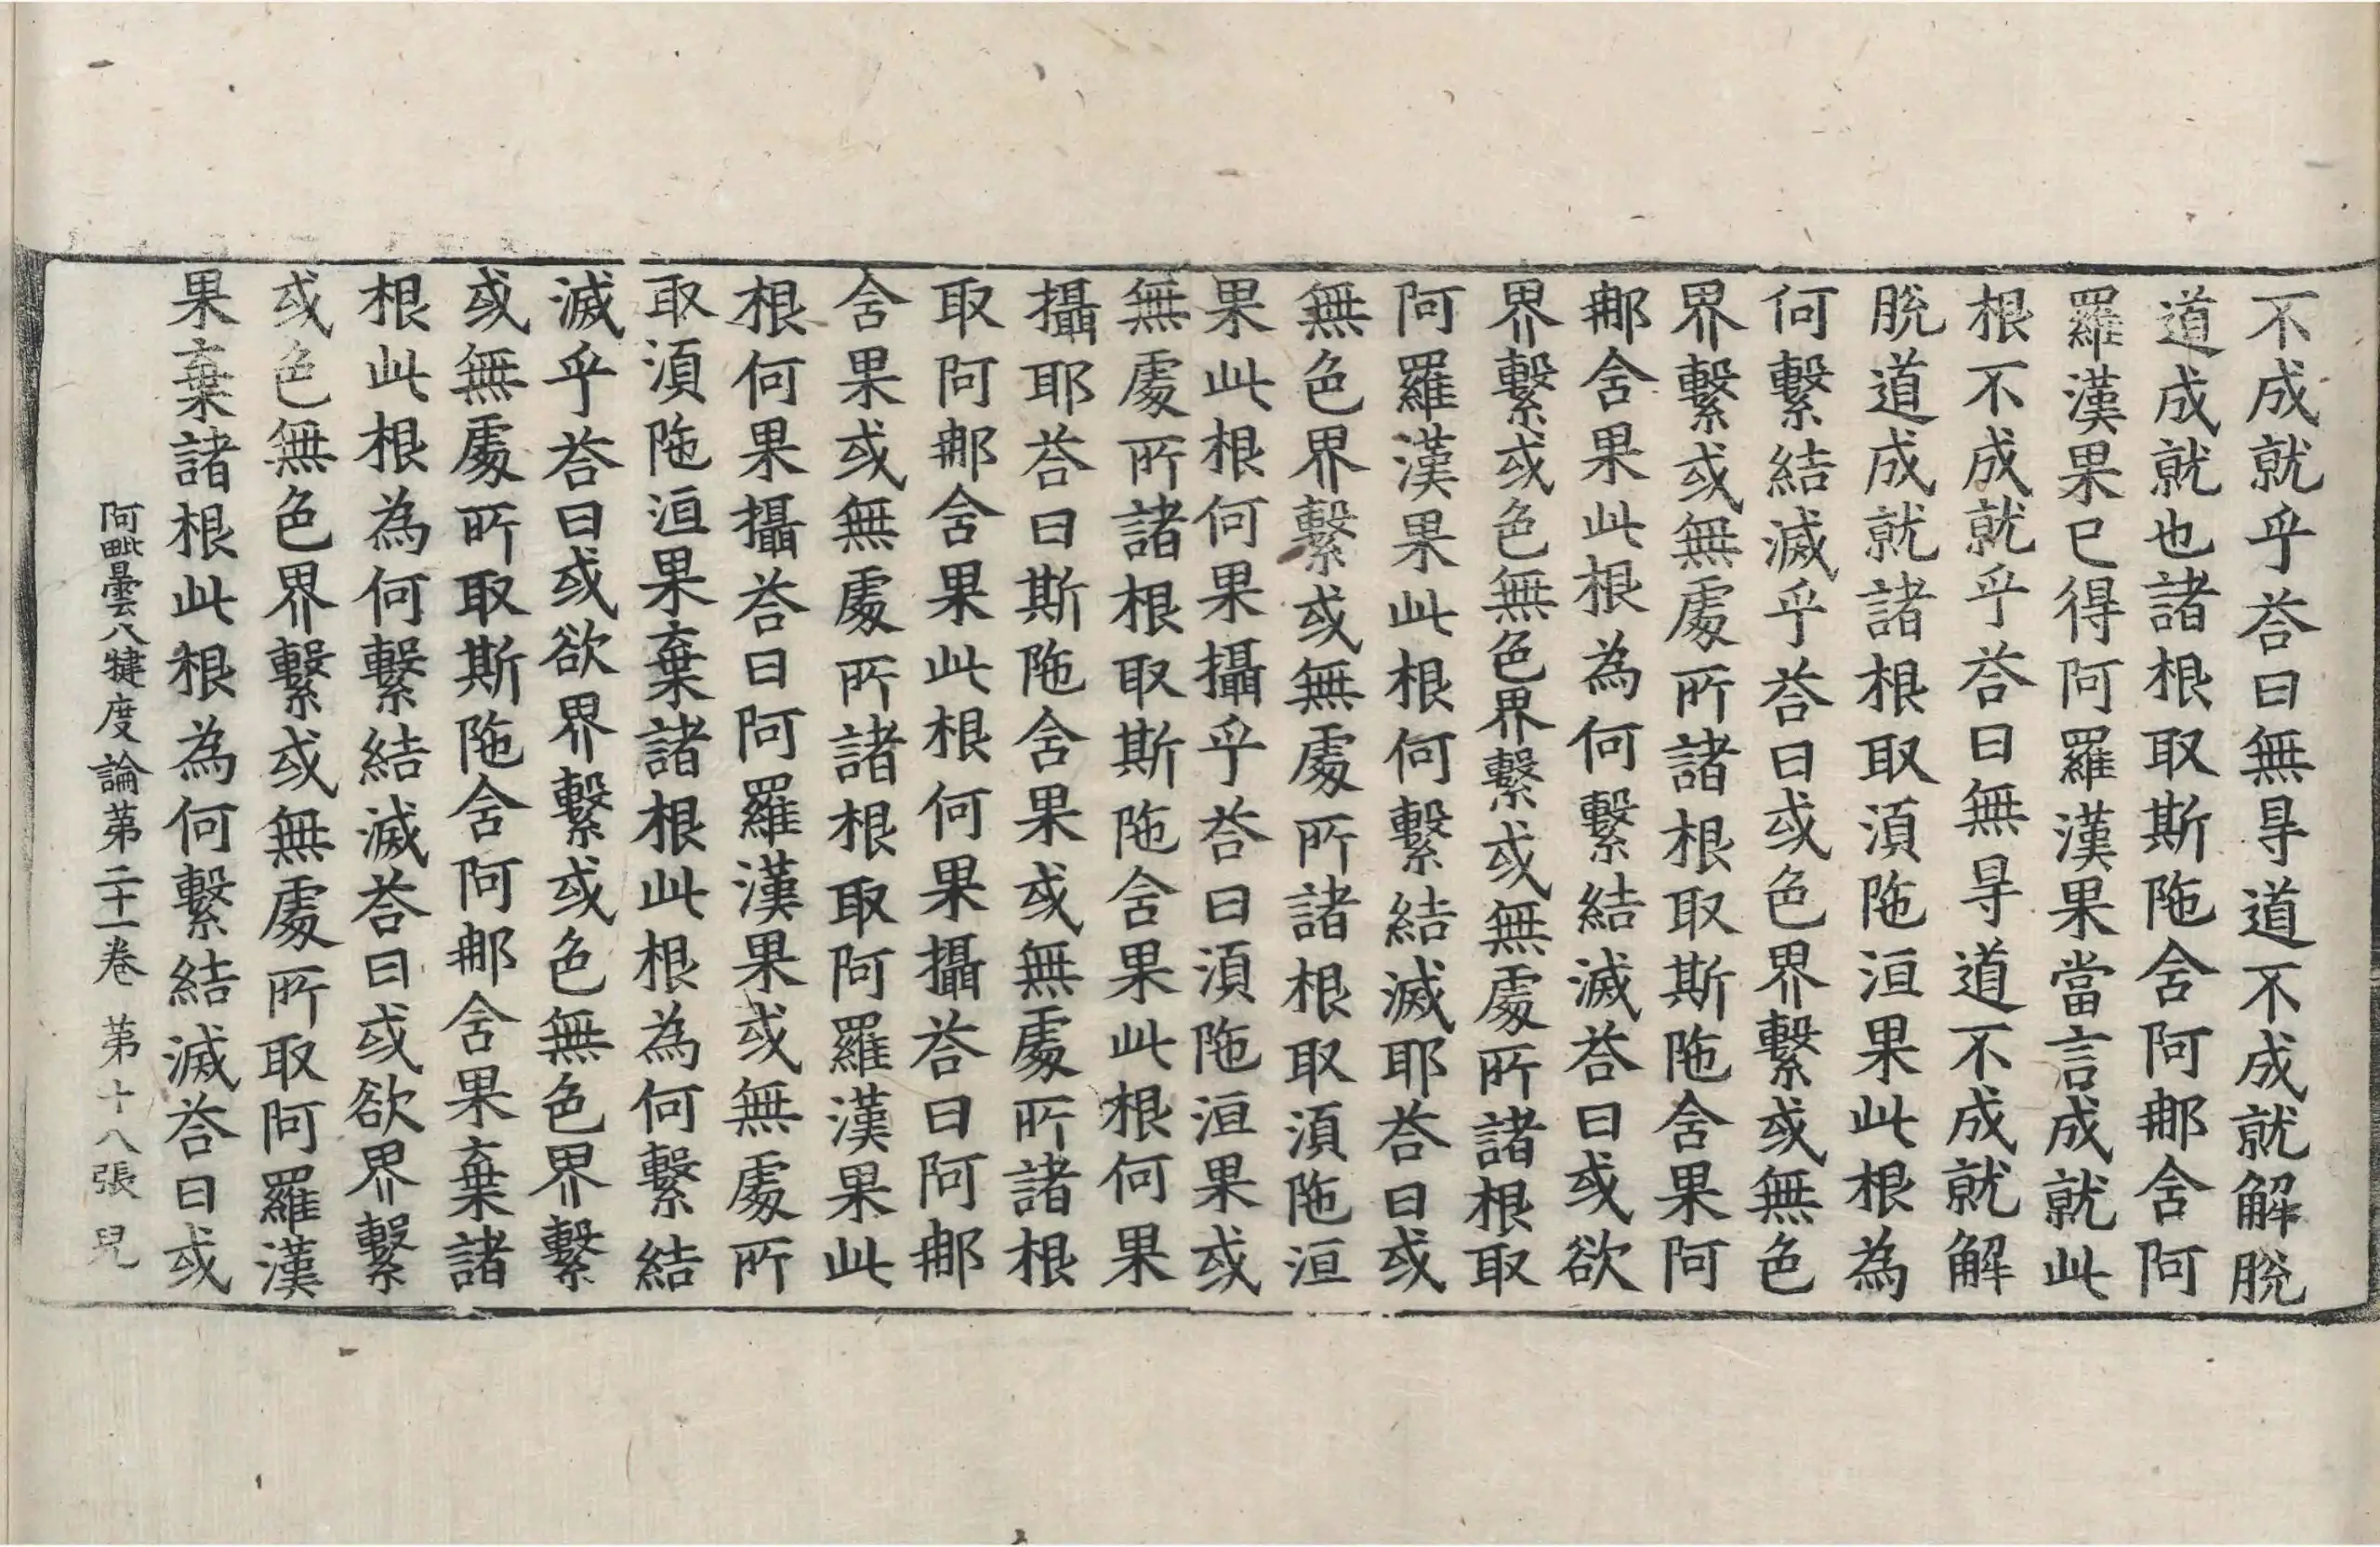 不成就乎荅曰無㝵道不成就解脫
道成就也諸根取斯陁舍阿那舍阿
羅漢果已得阿羅漢果當言成就此
根不成就乎荅曰無㝵道不成就解
脫道成就諸根取湏陁洹果此根為
何繫結滅乎荅曰或色界繫或無色
界繫或無處所諸根取斯陁舍果阿
那舍果此根為何繫結滅荅曰或欲
界繫或色無色界繫或無處所諸根取
阿羅漢果此根何繫結滅耶荅曰或
無色界繫或無處所諸根取湏陁洹
果此根何果攝乎荅曰湏陁洹果或
無處所諸根取斯陁舍果此根何果
攝耶荅曰斯陁舍果或無處所諸根
取阿那舍果此根何果攝荅曰阿那
舍果或無處所諸根取阿羅漢果此
根何果攝荅曰阿羅漢果或無處所
取湏陁洹果棄諸根此根為何繫結
滅乎荅曰或欲界繫或色無色界繫
或無處所取斯陁舍阿那舍果棄諸
根此根為何繫結滅荅曰或欲界繫
或色無色界繫或無處所取阿羅漢
果棄諸根此根為何繫結滅荅曰或
阿毗曇八犍度論第二十一卷 第十八張 兒